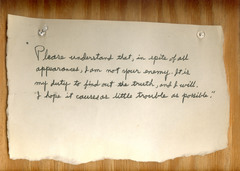 Please understand that, in spite of all
appearances, I am not your enemy. It is
my duty to find out the truth, and I will.
I hope it causes as little trouble as possible."